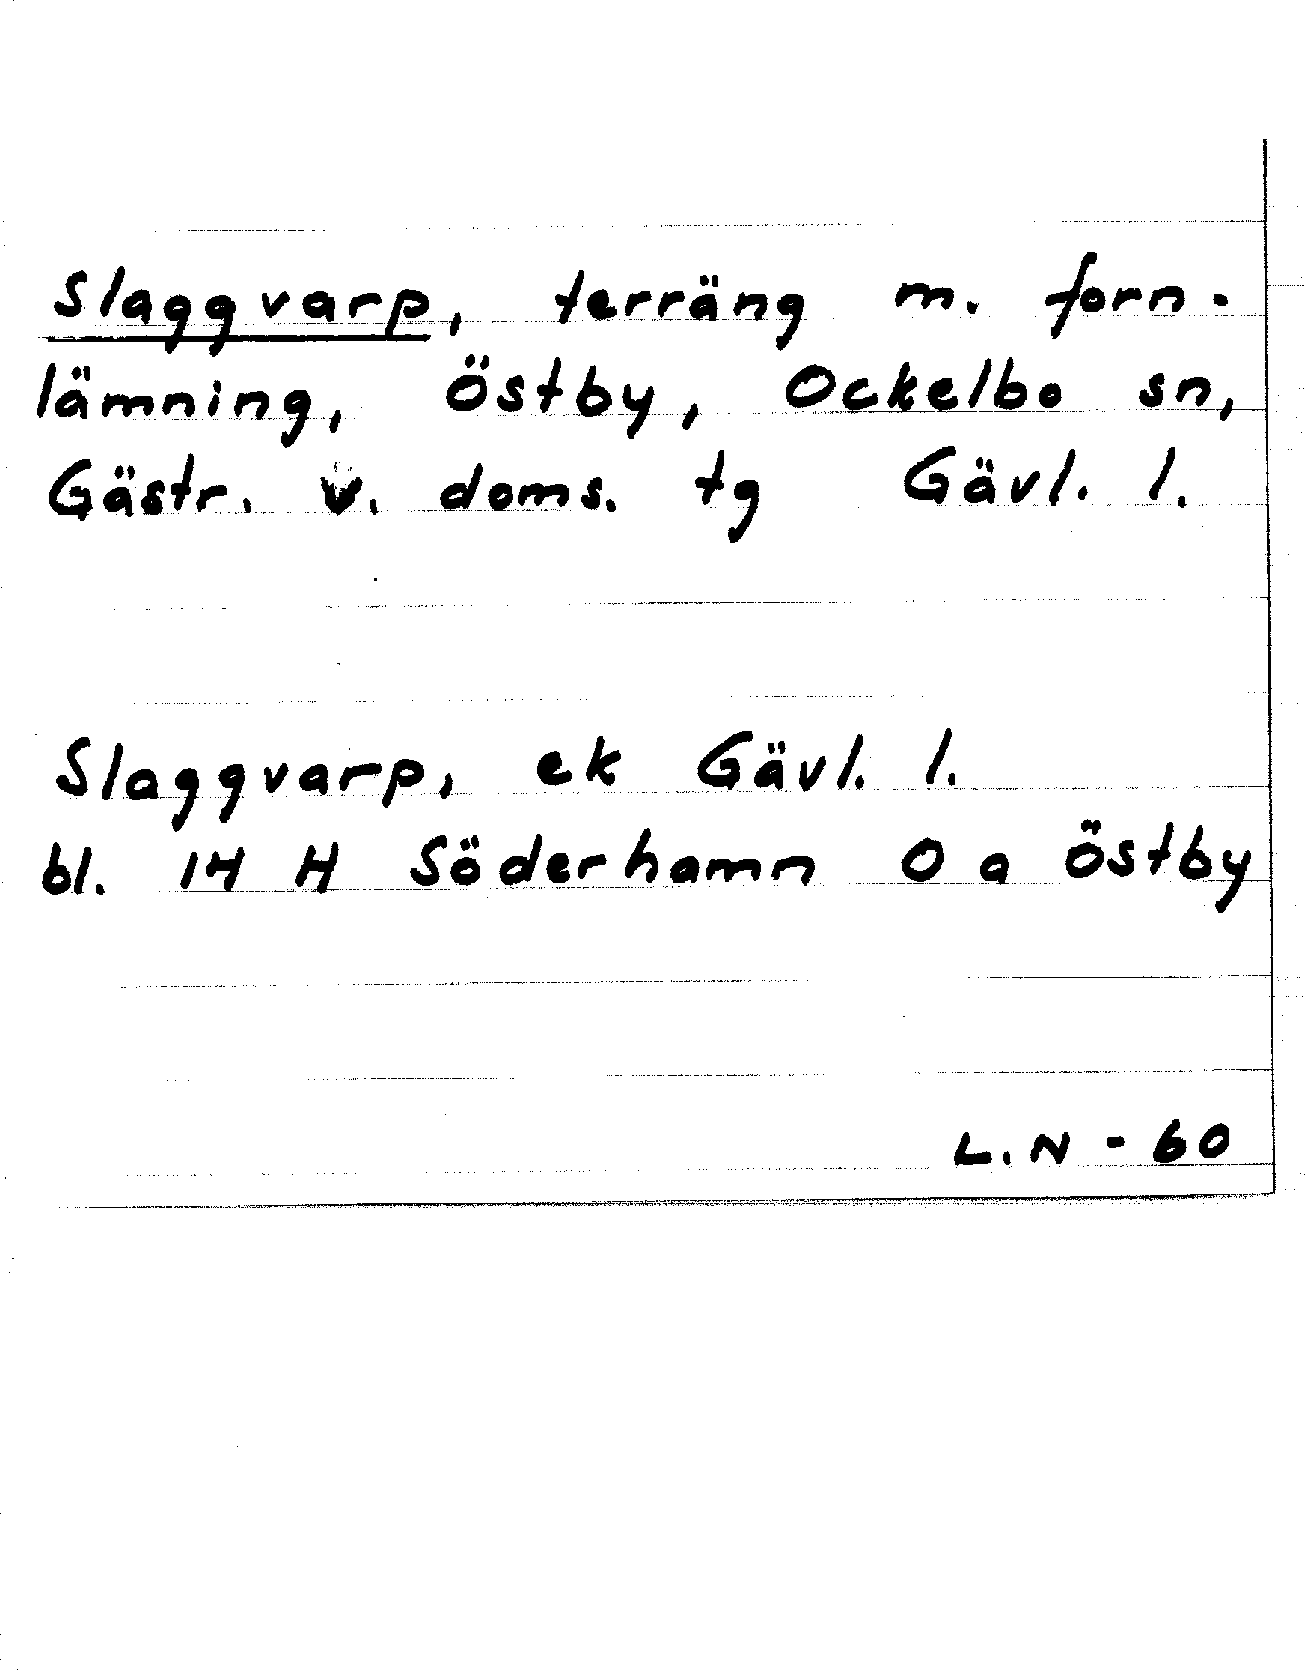 Slaggvarp, terräng m. forn-
lämning, Östby, Ockelbo sn,
Gästr. v. doms. tg Gävl. l.
Slaggvarp, ek Gävl. l.
bl. 14 H Söderhamn 0 a Östby
L.N - 60